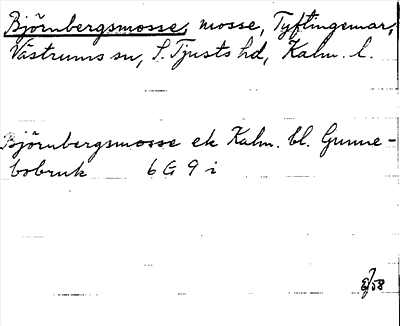 Björnbergsmosse, mosse, Tyftingemar,
Västrums sn, S. Tjusts hd, Kalm. l.
Björnbergsmosse ek Kalm. bl. Gunne-
bobruk 6 G 9 i
/58